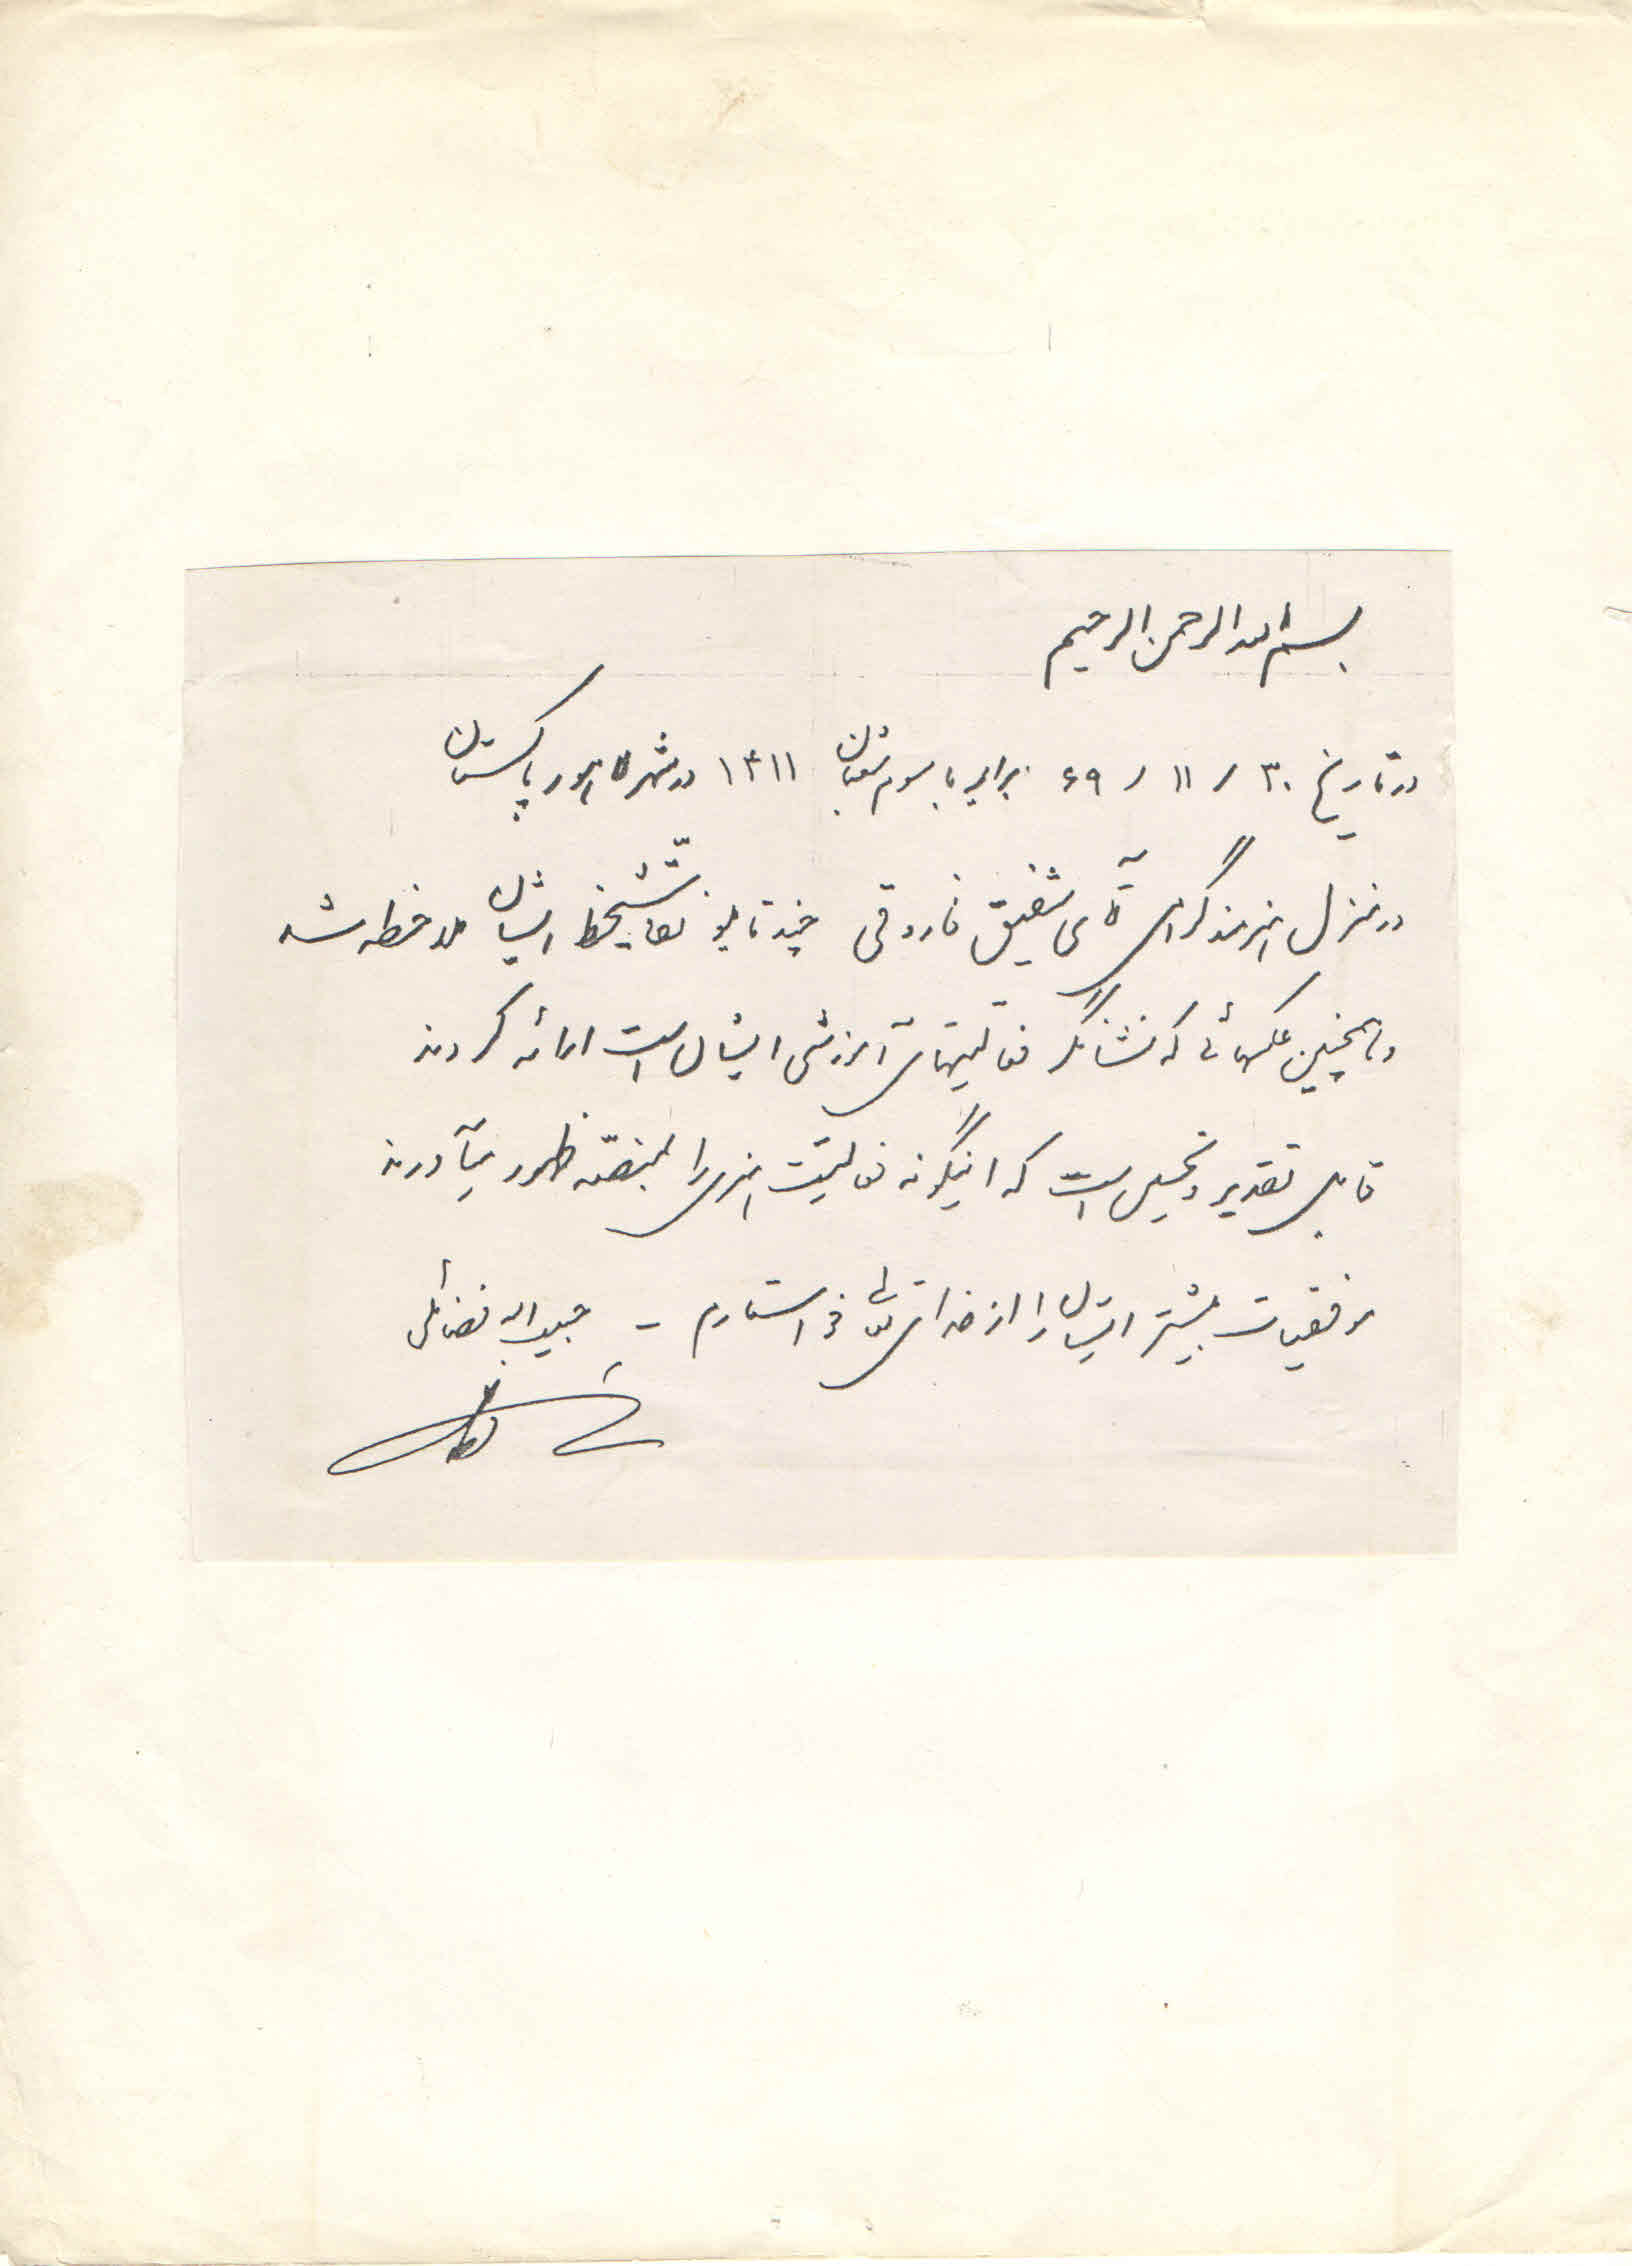 بسم الله الرحمن الرحیم
در تاریخ ۳۰ / ۱۱ / ۶۹ برابر با سوم شعبان ۱۴۱۱ در شهر لاهور پاکستان
در منزل هنرمند گرامی آقای شفیق فاروقی چند تابلو نقاشیخط ایشان ملاحظه شد
و همچنین عکسهائی که نشانگر فعالیتهای آموزشی ایشان است ارائه کردند
قابل تقدیر و تحسین است که اینگونه فعالیت هنری را بمنصّه ظهور میآورند
موفقیات بیشتر ایشان را از خدای تعالی خواستارم - حبیب الله فضائلی